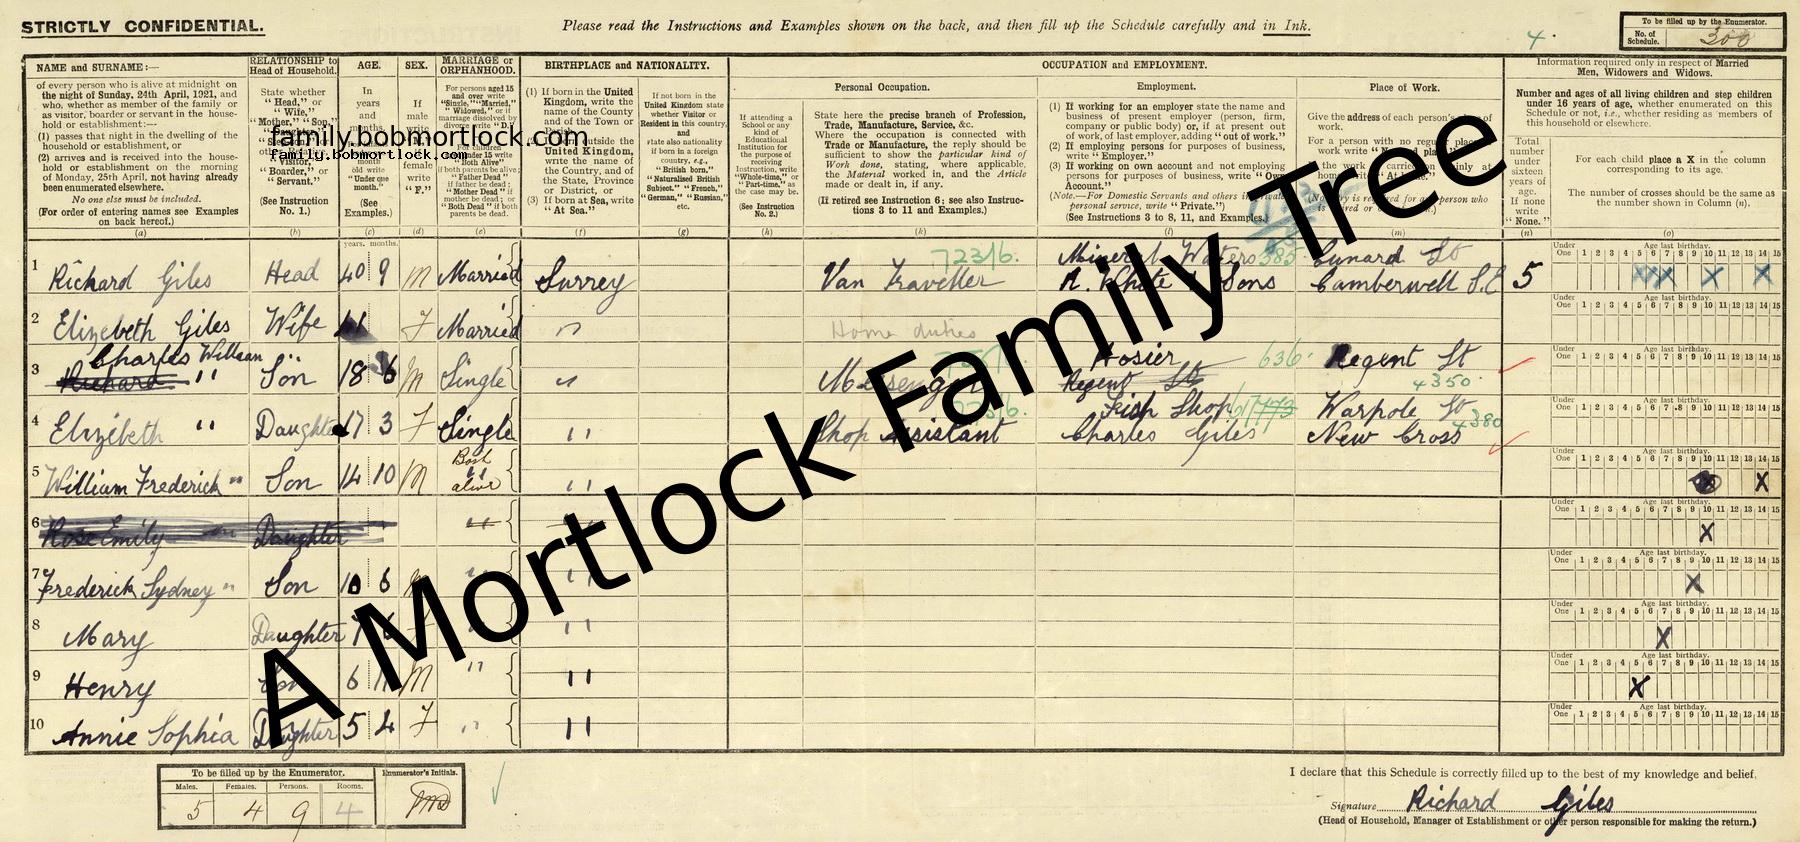 STRICTLY CONFIDENTIAL.
Please read the Instructions and Examples shown on the back, and then fill up the Schedule carefully and in Ink.
4
To be filled up by the Enumerator.
No. of Schedule. 300
NAME and SURNAME:—
of every person who is alive at midnight on
the night of Sunday, 24th April, 1921, and
who, whether as member of the family or
as visitor, boarder or servant in the house-
hold or establishment:—
(1) passes that night in the dwelling of the
household or establishment, or
(2) arrives and is received into the house-
hold or establishment on the morning
of Monday, 25th April, not having already
been enumerated elsewhere.
No one else must be included.
(For order of entering names see Examples
on back hereof.)
(a)
RELATIONSHIP to
Head of Household.
State whether
"Head," or
"Wife,"
"Mother," "Son,"
Visitor,"
Boarder," or
"Servant."
(See Instruction
No. 1.)
(b)
AGE.
In
years
and
months.
old write
"Under one
month."
(See
Examples.)
(c)
SEX.
If
male
write
"F."
(d)
MARRIAGE or
ORPHANHOOD.
For persons aged 15
and over write
"Single," "Married,"
"Widowed," or if
marriage dissolved by
write
"Both Alive"
if both parents be alive;
"Father Dead"
if father be dead;
"Mother Dead" if
mother be dead; or
"Both Dead" if both
parents be dead.
(e)
BIRTHPLACE and NATIONALITY.
(1) If born in the United
Kingdom, write the
name of the County
and of the Town or
Parish.
(2) If born outside the
United Kingdom,
write the name of
the Country, and of
the State, Province
or District, or
(3) If born at Sea, write
"At Sea."
(f)
If not born in the
United Kingdom state
whether Visitor or
Resident in this country,
and
state also nationality
if born in a foreign
country, e.g.,
"British born,"
"Naturalised British
Subject." "French,"
"German," "Russian,"
etc.
(g)
OCCUPATION and EMPLOYMENT.
If attending a
School or any
kind of
Educational
Institution for
the purpose of
receiving
Instruction, write
"Whole-time," or
"Part-time," as
the case may be.
(See Instruction
No. 2.)
(h)
Personal Occupation.
State here the precise branch of Profession,
Trade, Manufacture, Service, &c.
Where the occupation is connected with
Trade or Manufacture, the reply should be
sufficient to show the particular kind of
Work done, stating, where applicable,
the Material worked in, and the Article
made or dealt in, if any.
(If retired see Instruction 6; see also Instruc-
tions 3 to 11 and Examples.)
(k)
Employment.
(1) If working for an employer state the name and
business of present employer (person, firm,
company or public body) or, if at present out
of work, of last employer, adding "out of work."
(2) If employing persons for purposes of business,
write "Employer."
(3) If working on own account and not employing
persons for purposes of business, write "Own
Account."
(Note.—For Domestic Servants and others in private
personal service, write "Private.")
(See Instructions 3 to 8, 11, and Examples.)
(l)
Place of Work.
Give the address of each person's place of
work.
For a person with no regular place of
work write "No fixed place."
(m)
Information required only in respect of Married
Men, Widowers and Widows.
Number and ages of all living children and step children
under 16 years of age, whether enumerated on this
Schedule or not, i.e., whether residing as members of
this household or elsewhere.
Total
number
under
sixteen
years of
age.
If none
write
"None."
(n)
For each child place a X in the column
corresponding to its age.
The number of crosses should be the same as
the number shown in Column (n).
(o)
family.bobmortlock.com
family.bobmortlock.com
A Mortlock Family Tree
years. months.
1 Richard Giles Head 40 9 M Married Surrey Van Traveller 723/6. Mineral Waters 385 R. White & Sons Cunard St Camberwell S.E 5
2 Elizebeth Giles Wife F Married " Home duties
3 Charles William Richard " Son 18 6 M Single " Messenger Hosier 636 Regent St Regent St 4350
4 Elizibeth " Daughter 17 3 F Single " Shop Assistant Fish Shop Charles Giles Warpole St New Cross 4380
5 William Frederick " Son 14 10 M Both alive "
6 Rose Emily " Daughter "
7 Frederick Sydney " Son 10 6 M " "
8 Mary Daughter "
9 Henry Son 6 M " "
10 Annie Sophia Daughter 5 4 F " "
Age last birthday.
Under One 1 2 3 4 5 6 7 8 9 10 11 12 13 14 15
To be filled up by the Enumerator.
Males. Females. Persons. Rooms.
5 4 9 4
Enumerator's Initials.
I declare that this Schedule is correctly filled up to the best of my knowledge and belief.
Signature Richard Giles
(Head of Household, Manager of Establishment or other person responsible for making the return.)